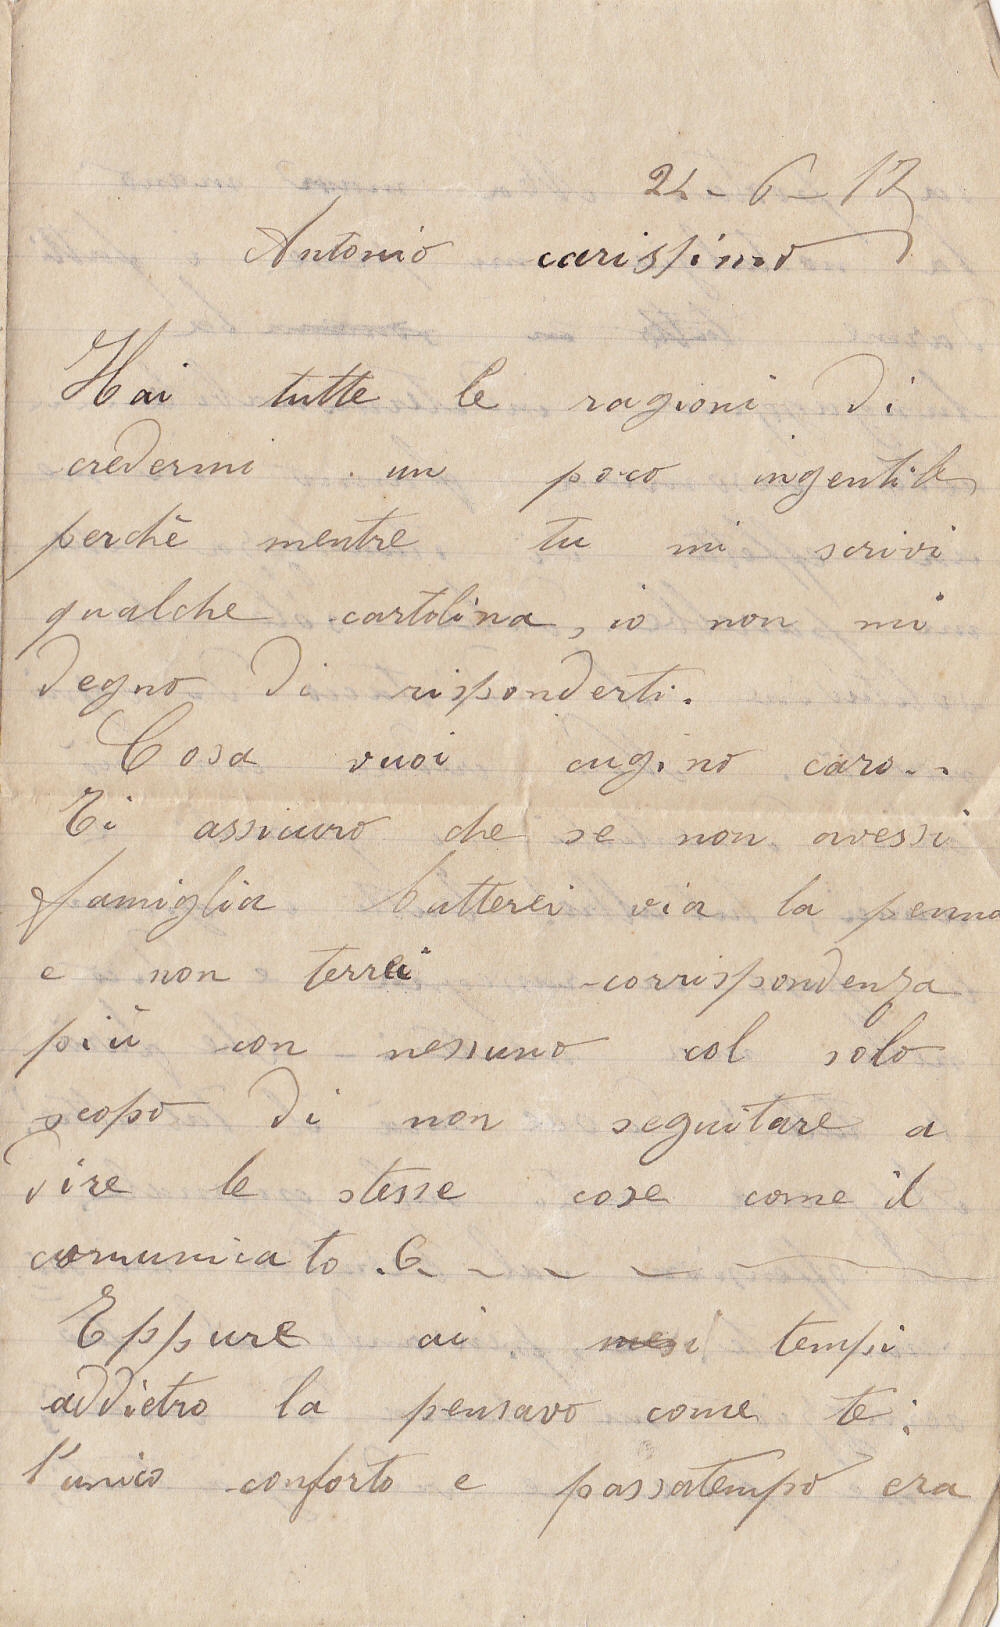 24-6-17
Antonio carissimo
Hai tutte le ragioni di
credermi un poco ingentile
perchè mentre tu mi scrivi
qualche cartolina, io non mi
degno di risponderti.
Cosa vuoi cugino caro..
Ti assicuro che se non avessi
famiglia butterei via la penna
e non terrei corrispondenza
più con nessuno col solo
scopo di non seguitare a
dire le stesse cose come il
comunicato .C- - - - -
Eppure ai mesi tempi
addietro la pensavo come te:
l'unico conforto e passatempo era